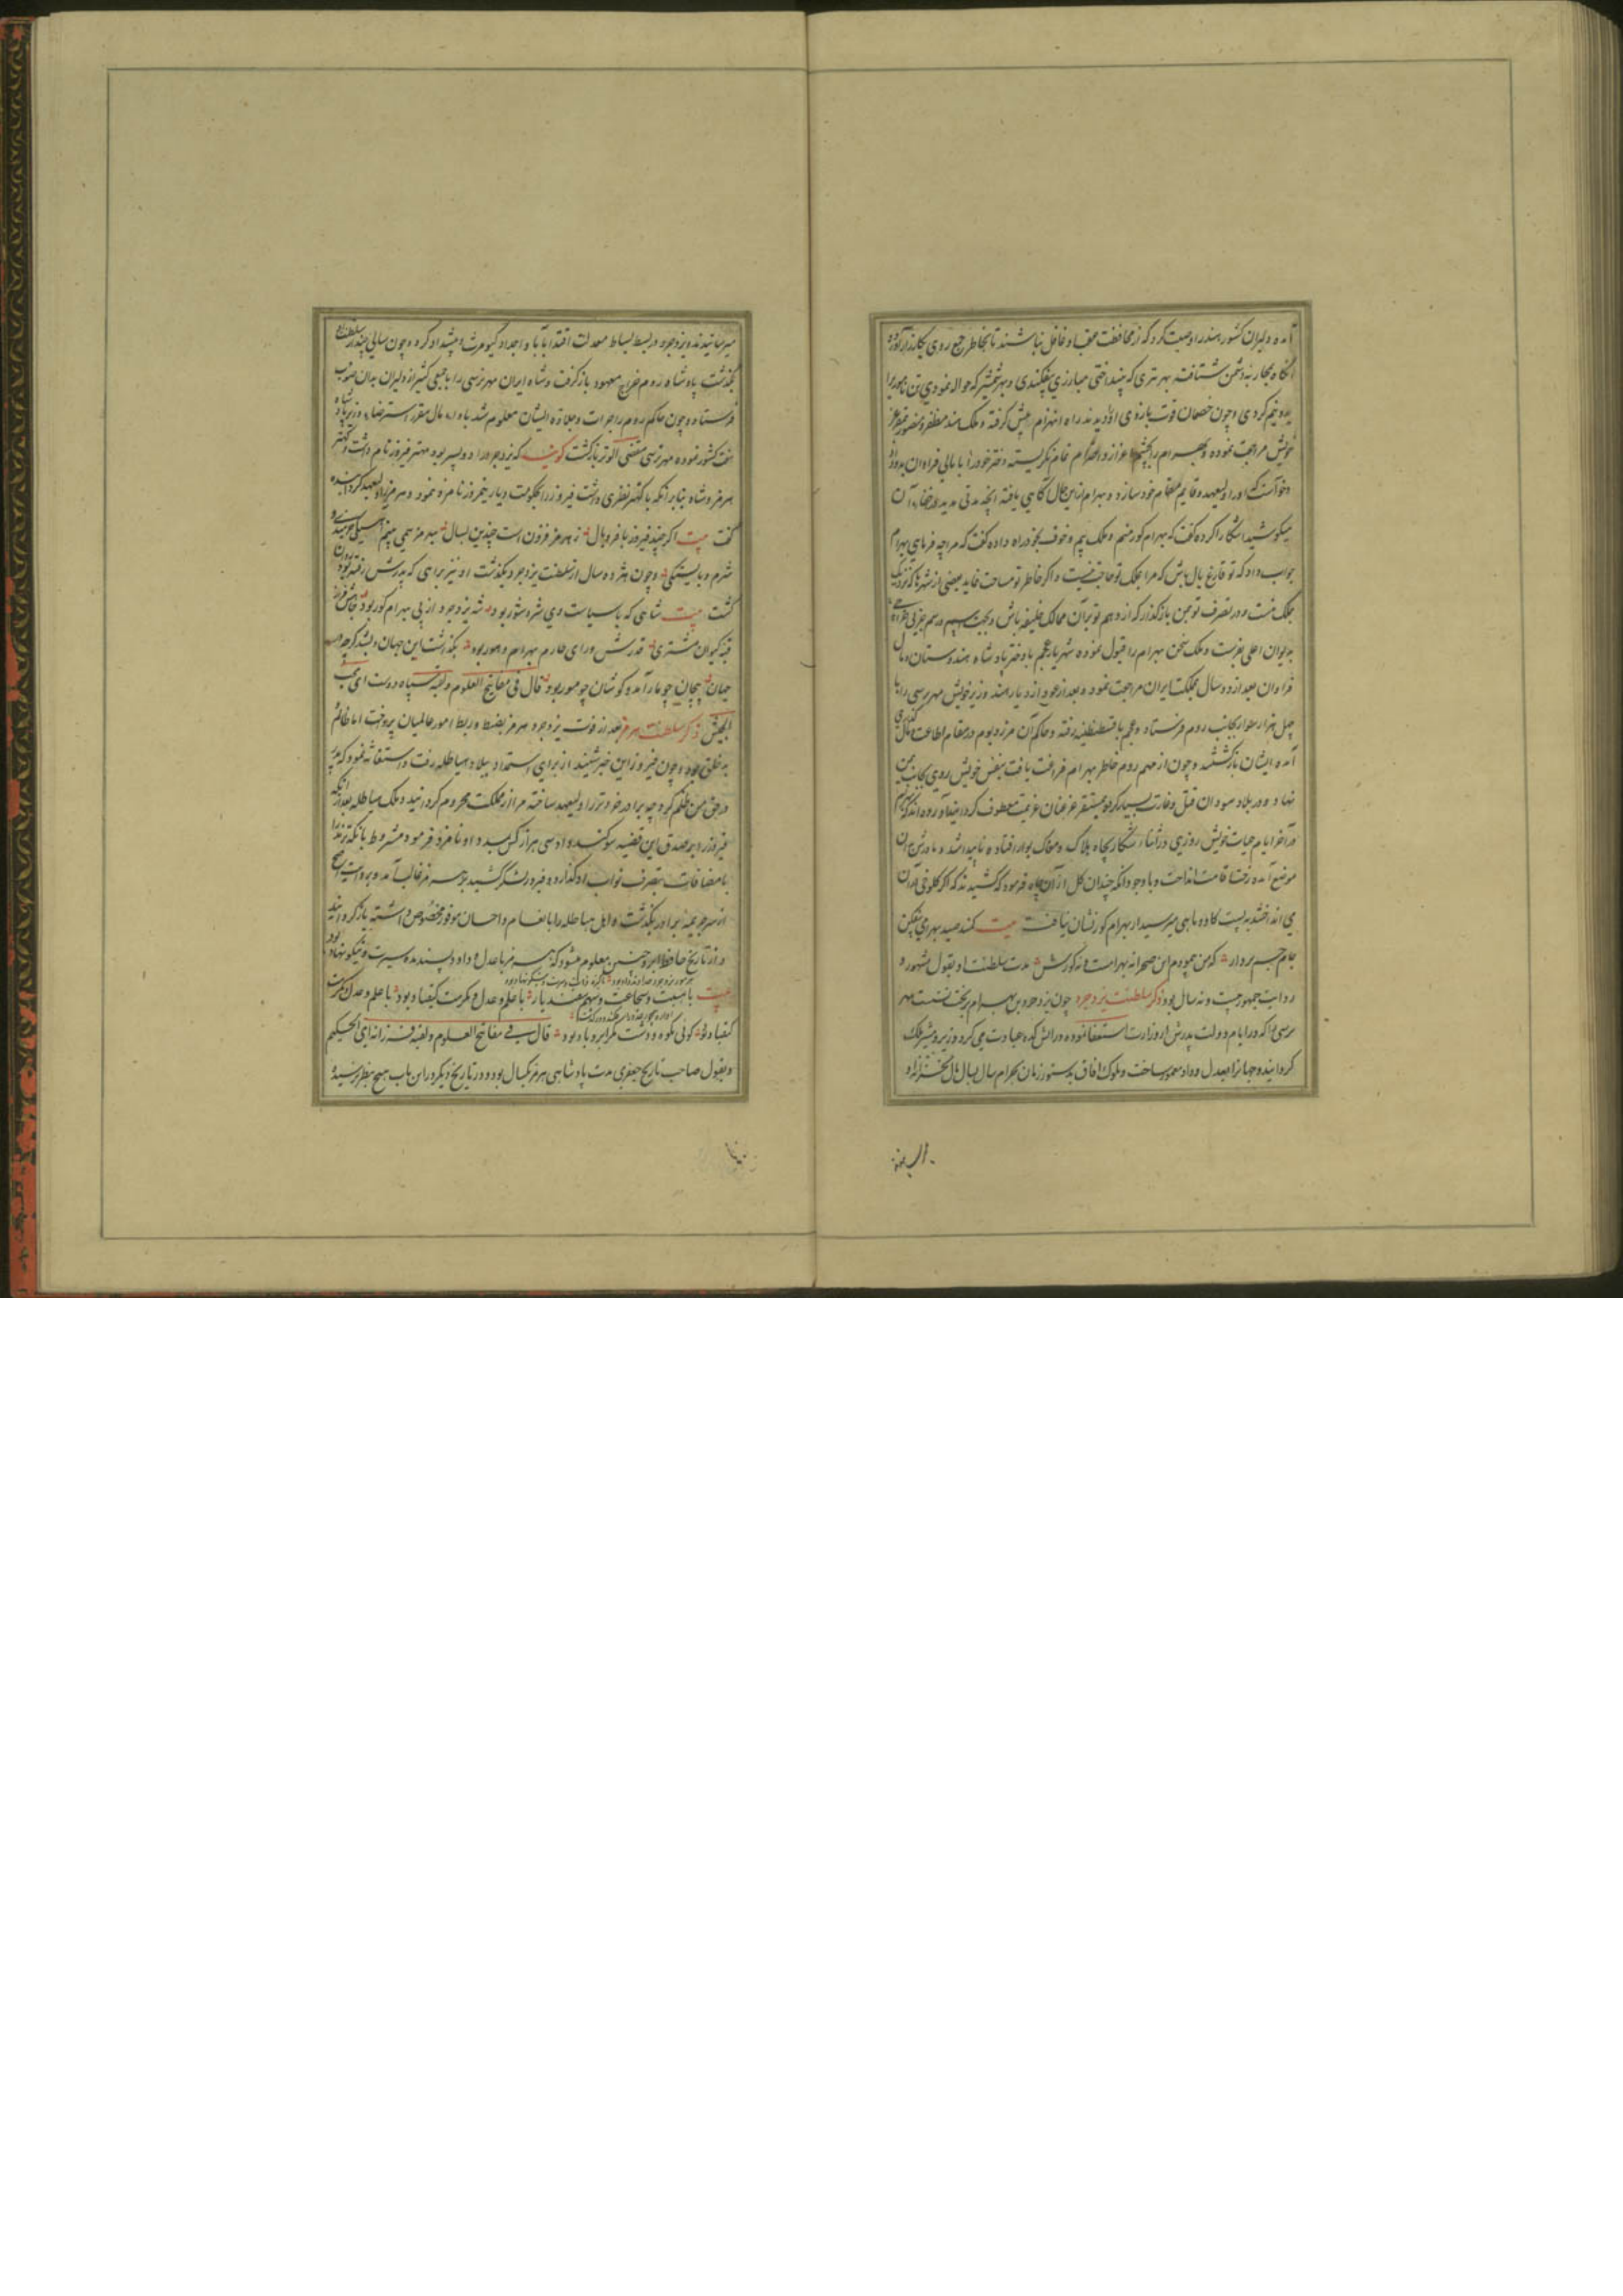 آمده دلیران کشور هند را وصیت کرد که از محافظت عقب او غافل نباشند تا بخاطر جمع روی بکارزار آورده
آنگاه بمحاربه دشمن شتافته بهر تیری که بینداختی مبارزی بیفکندی و بهر شمشیر که حواله نمودی تن نامور را
بدو نیم کردی و چون خصمان قوت بازوی او دیدند راه انهزام پیش گرفته و ملک هند مظفر و منصور بمقر عز
خویش مراجعت نموده و بهرام را بچشم اعزاز و احترام تمام نگریسته دختر خود را با مالی فراوان بدو داد
و خواست که او را ولیعهد و قایم مقام خود سازد و بهرام از این حال آگاهی یافته آنچه مدتی مدید در اخفاء آن
میکوشید آشکارا کرده گفت که بهرام گور منم و ملک بیم و خوف بخود راه داده گفت که مرا چه فرمای بهرام
جواب داد که تو فارغ بال باش که مرا بملک تو حاجت نیست و اگر خاطر تو مسامحت نماید بعضی از شهرها که نزدیک
بملک منست و در تصرف تو بمن بازگذار که از و هم تو بر آن ممالک خلیفه باش و بجهت من رسم جزیه
بدیوان اعلی بفرست و ملک سخن بهرام را قبول نموده شهریار عجم با دختر پادشاه هندوستان و مال
فراوان بعد از دو سال بمملکت ایران مراجعت نمود و بعد از عود از دیار هند وزیر خویش مهرنرسی را با
چهل هزار سوار بجانب روم فرستاد و عجم با قسطنطنیه رفته و حاکم آن مرز و بوم در مقام اطاعت و مال گذاری
آمده ایشان بازگشتند و چون از مهم روم خاطر بهرام فراغت یافت بنفس خویش روی بجانب یمن
نهاد و در بلاد سودان قتل و غارت بسیار کرده بمستقر عز عنان عزیمت معطوف گردانید آورده‌اند که بهرام
در آخر ایام حیات خویش روزی در اثناء شکار بچاه هلاک و مغاک بوار افتاده ناپیدا شد و مادرش بر آن
موضع آمده رخت اقامت انداخت و با وجود آنکه چندان گل از آن چاه فرمود که کشیدند که اگر کلوخی در آن
می انداختند به پشت گاو و ماهی میرسید از بهرام گور نشان نیافت بیت کمند صید بهرامی بیفکن
جام جم بردار که من پیمودم این صحرا نه بهرامست و نه گورش مدت سلطنت او بقول مشهور و
روایت جمهور بیست و نه سال بود ذکر سلطنت یزدجرد چون یزدجرد بن بهرام بر تخت نشست مهر
نرسی را که در ایام دولت پدرش از وزارت استعفا نموده در آتش کده عبادت می کرد وزیر و مشیر ملک
گردانید و جهانرا بعدل و داد معمور ساخت و ملوک آفاق بدستور زمان بهرام سال بسال مال بخزانه او
الیه
میرسانیدند و یزدجرد در بسط بساط معدلت اقتدا بآبا و اجداد کیومرث و پیشداد کرد و چون سالی چند از سلطنت او
بگذشت پادشاه روم خراج معهود بازگرفت و شاه ایران مهرنرسی را با جمعی کثیر از دلیران بدان صوب
فرستاد و چون حاکم روم را جرات و جلادت ایشان معلوم شد باداء مال مقرر استرضاء وزیر پادشاه
هفت کشور نموده مهرنرسی مقضی الوطر بازگشت گویند که یزدجرد را دو پسر بود مهتر فیروز نام داشت و کهتر
هرمز و شاه بنا بر آنکه با کهتر نظری داشت فیروز را بحکومت دیار نیمروز نامزد نمود و هرمز را ولیعهد گردانیده
گفت بیت اگر چند فیروز با فر و یال ز هرمز فزون است چندین بسال به هرمز همی بینم آهستگی خردمندی و
شرم و بایستگی و چون هژده سال از سلطنت یزدجرد بگذشت او نیز براهی که پدرش رفته بود روان
گشت بیت شاهی که با سیاست وی شر و شور بود شه یزدجرد از پی بهرام گور بود
قبه کیوان مشتری قدرش ورای طارم بهرام و هور بود بگذاشت این جهان و بشد گرچه در
جهان پیچان چو مار آمد و کوشان چو مور بود قال فی مفاتیح العلوم و لقبه سپاه دوست ای محب
الجیش ذکر سلطنت هرمز بعد از فوت یزدجرد هرمز بضبط و ربط امور عالمیان پرداخت اما ظالم
بد خلق بود و چون فیروز این خبر شنید از برای استمداد ببلاد هیاطله رفت و استغاثه نمود که پدر
در حق من ظلم کرد چه برادر خردتر را ولیعهد ساخته مرا از مملکت محروم گردانید و ملک هیاطله بعد از آنکه
فیروز را بصدق این قضیه سوگند داد سی هزار کس بمدد او نامزد فرمود مشروط بآنکه ترمد را
با مضافات بتصرف نواب او گذارد و فیروز لشکر کشید بر هرمز غالب آمد و بروایت اصح
از سر جریمه برادر بگذشت و اهل هیاطله را بانعام و احسان موفور مخصوص داشته بازگردانید
و از تاریخ حافظ ابرو چنین معلوم میشود که هرمز با عدل و داد و پسندیده سیرت و نیکو نهاد بود
بیت با هیبت و شجاعت و سهم سفندیار با علم و عدل و مکرمت کیقباد بود با علم و عدل و مکرمت
کیقباد بود گوئی بکوه و دشت مگر ابر و باد بود قال فی مفاتیح العلوم و لقبه فرزانه ای الحکیم
و بقول صاحب تاریخ جعفری مدت پادشاهی هرمز یکسال بود و در تاریخ دیگر در این باب هیچ بنظر نرسید